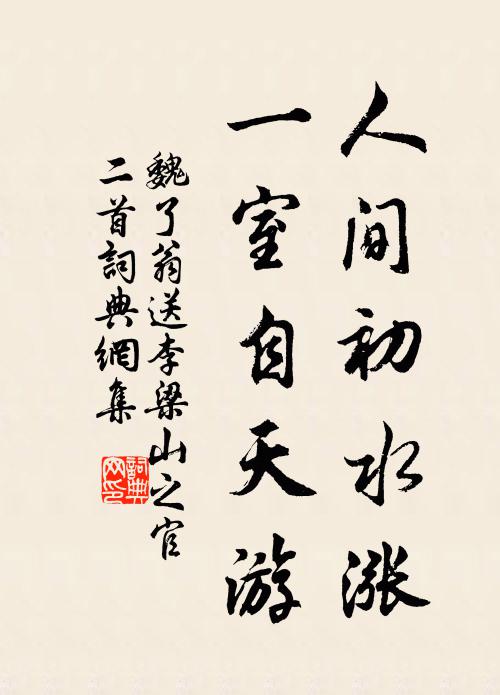 人间初水漲
一室自天游
魏了翁送李梁山之官
二首詞典網集
詞典
网印